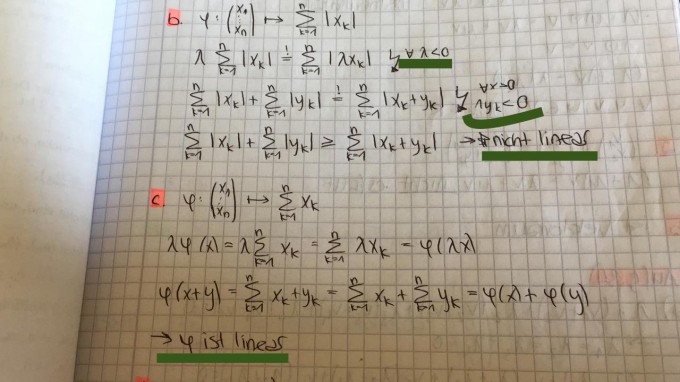 b. φ: (x₁ ⋮ xₙ) ↦ ∑ₖ₌₁ⁿ |xₖ|
λ ∑ₖ₌₁ⁿ |xₖ| =! ∑ₖ₌₁ⁿ |λxₖ| ↯ ∀ λ<0
∑ₖ₌₁ⁿ |xₖ| + ∑ₖ₌₁ⁿ |yₖ| =! ∑ₖ₌₁ⁿ |xₖ+yₖ| ↯
∨yₖ<0
∑ₖ₌₁ⁿ |xₖ| + ∑ₖ₌₁ⁿ |yₖ| ≥ ∑ₖ₌₁ⁿ |xₖ+yₖ| → nicht linear
c. φ: (x₁ ⋮ xₙ) ↦ ∑ₖ₌₁ⁿ xₖ
λφ(x) = λ ∑ₖ₌₁ⁿ xₖ = ∑ₖ₌₁ⁿ λxₖ = φ(λx)
φ(x+y) = ∑ₖ₌₁ⁿ xₖ+yₖ = ∑ₖ₌₁ⁿ xₖ + ∑ₖ₌₁ⁿ yₖ = φ(x) + φ(y)
→ φ ist linear